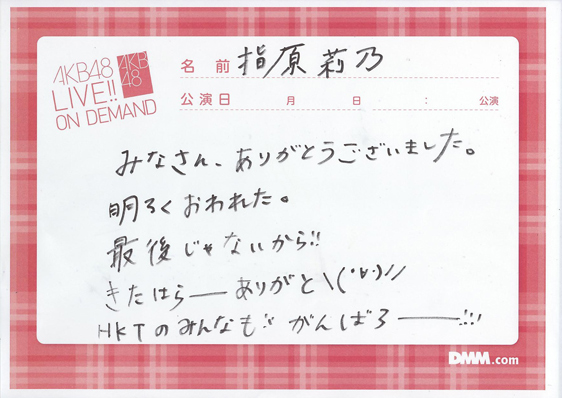 AKB48
LIVE!!
ON DEMAND
AKB
48
名 前 指原莉乃
公演日 月 日 : 公演
みなさん、ありがとうございました。
明るくおわれた。
最後じゃないから!!
きたはらーありがと\(・∀・)//
HKTのみんなも!! がんばろー!!!
DMM.com